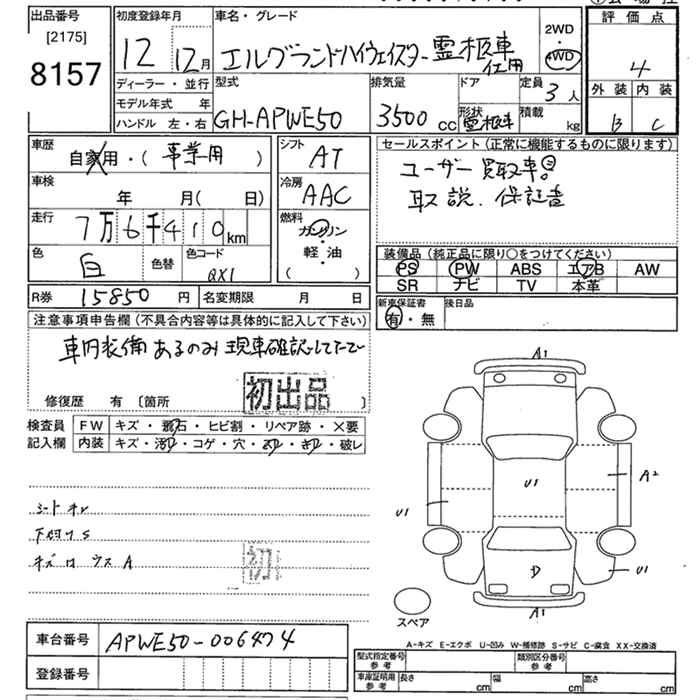 出品番号
[2175]
8157
初度登録年月
12 12月
車名・グレード
エルグランドハイウェイスター霊柩車仕用
2WD
4WD
評価点
4
外装 内装
B C
ディーラー・並行
モデル年式 年
ハンドル 左・右
型式
GH-APWE50
排気量
3500 cc
ドア
形状
霊柩車
定員
3人
積載
kg
車歴
自家用・(事業用)
シフト
AT
車検
年 月(日)
冷房
AAC
走行
7万6千410km
燃料
ガソリン
・
軽・油
( )
色
白
色替
色コード
QX1
R券 15850円 名変期限 月 日
セールスポイント(正常に機能するものに限ります)
ユーザー買取車
取説、保証書
装備品(純正品に限り○をつけてください)
PS PW ABS エアB AW
SR ナビ TV 本革
新車保証書
有・無
後日品
注意事項申告欄(不具合内容等は具体的に記入して下さい)
車内装備あるのみ現車確認して下さい
初出品
修復歴 有〔箇所 〕
検査員
記入欄
FW キズ・飛石・ヒビ割・リペア跡・×要
内装 キズ・汚れ・コゲ・穴・ ・ ・破レ
下廻りS
キズ A
初
A1
U1
A2
U1
U1
D
A1
スペア
車台番号 APWE50-006474
登録番号
A-キズ E-エクボ U-凹み W-補修跡 S-サビ C-腐食 XX-交換済
型式指定番号
参考
類別区分番号
参考
車庫証明用
参考
長さ cm 幅 cm 高さ cm